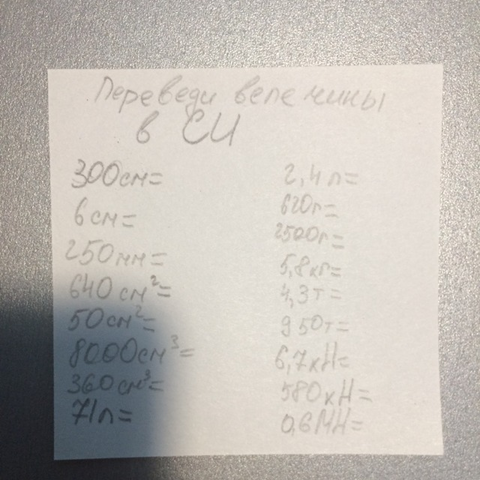 Переведи величины
в СИ
300см=
6см=
250мм=
640см²=
50см²=
8000см³=
360см³=
71л=
2,4л=
620г=
2500г=
5,8кг=
4,3т=
950т=
6,7кН=
580кН=
0,6МН=